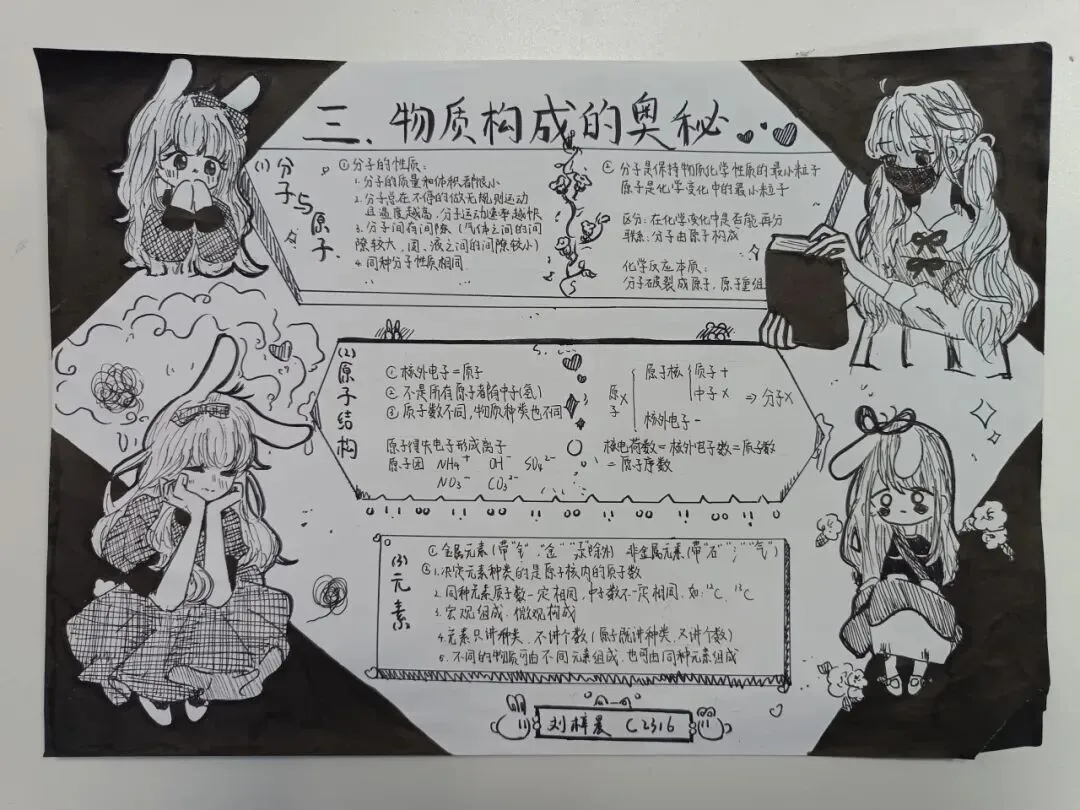 三、物质构成的奥秘
(1)分子与原子
①分子的性质:
1.分子的质量和体积都很小
2.分子总在不停的做无规则运动
且温度越高,分子运动速率越快
3.分子间有间隙(气体之间的间
隙较大,固、液之间的间隙较小)
4.同种分子性质相同
②分子是保持物质化学性质的最小粒子
原子是化学变化中的最小粒子
区分:在化学变化中是否能再分
联系:分子由原子构成
化学反应本质:
分子破裂成原子,原子重组
(2)原子结构
①核外电子=质子
②不是所有原子都有中子(氢)
③质子数不同,物质种类也不同
原子得失电子形成离子
原子团 NH₄⁺ OH⁻ SO₄²⁻
NO₃⁻ CO₃²⁻
原子X { 原子核 { 质子+
中子X ⇒分子X
核外电子-
核电荷数=核外电子数=质子数
=原子序数
(3)元素
①金属元素(带"钅","金""汞"除外) 非金属元素(带"石""氵""气")
②1.决定元素种类的是原子核内的质子数
2.同种元素质子数一定相同,中子数不一定相同.如:¹²C、¹³C
3.宏观组成.微观构成
4.元素只讲种类,不讲个数(原子既讲种类,又讲个数)
5.不同的物质可由不同元素组成.也可由同种元素组成
刘梓晨 C2316